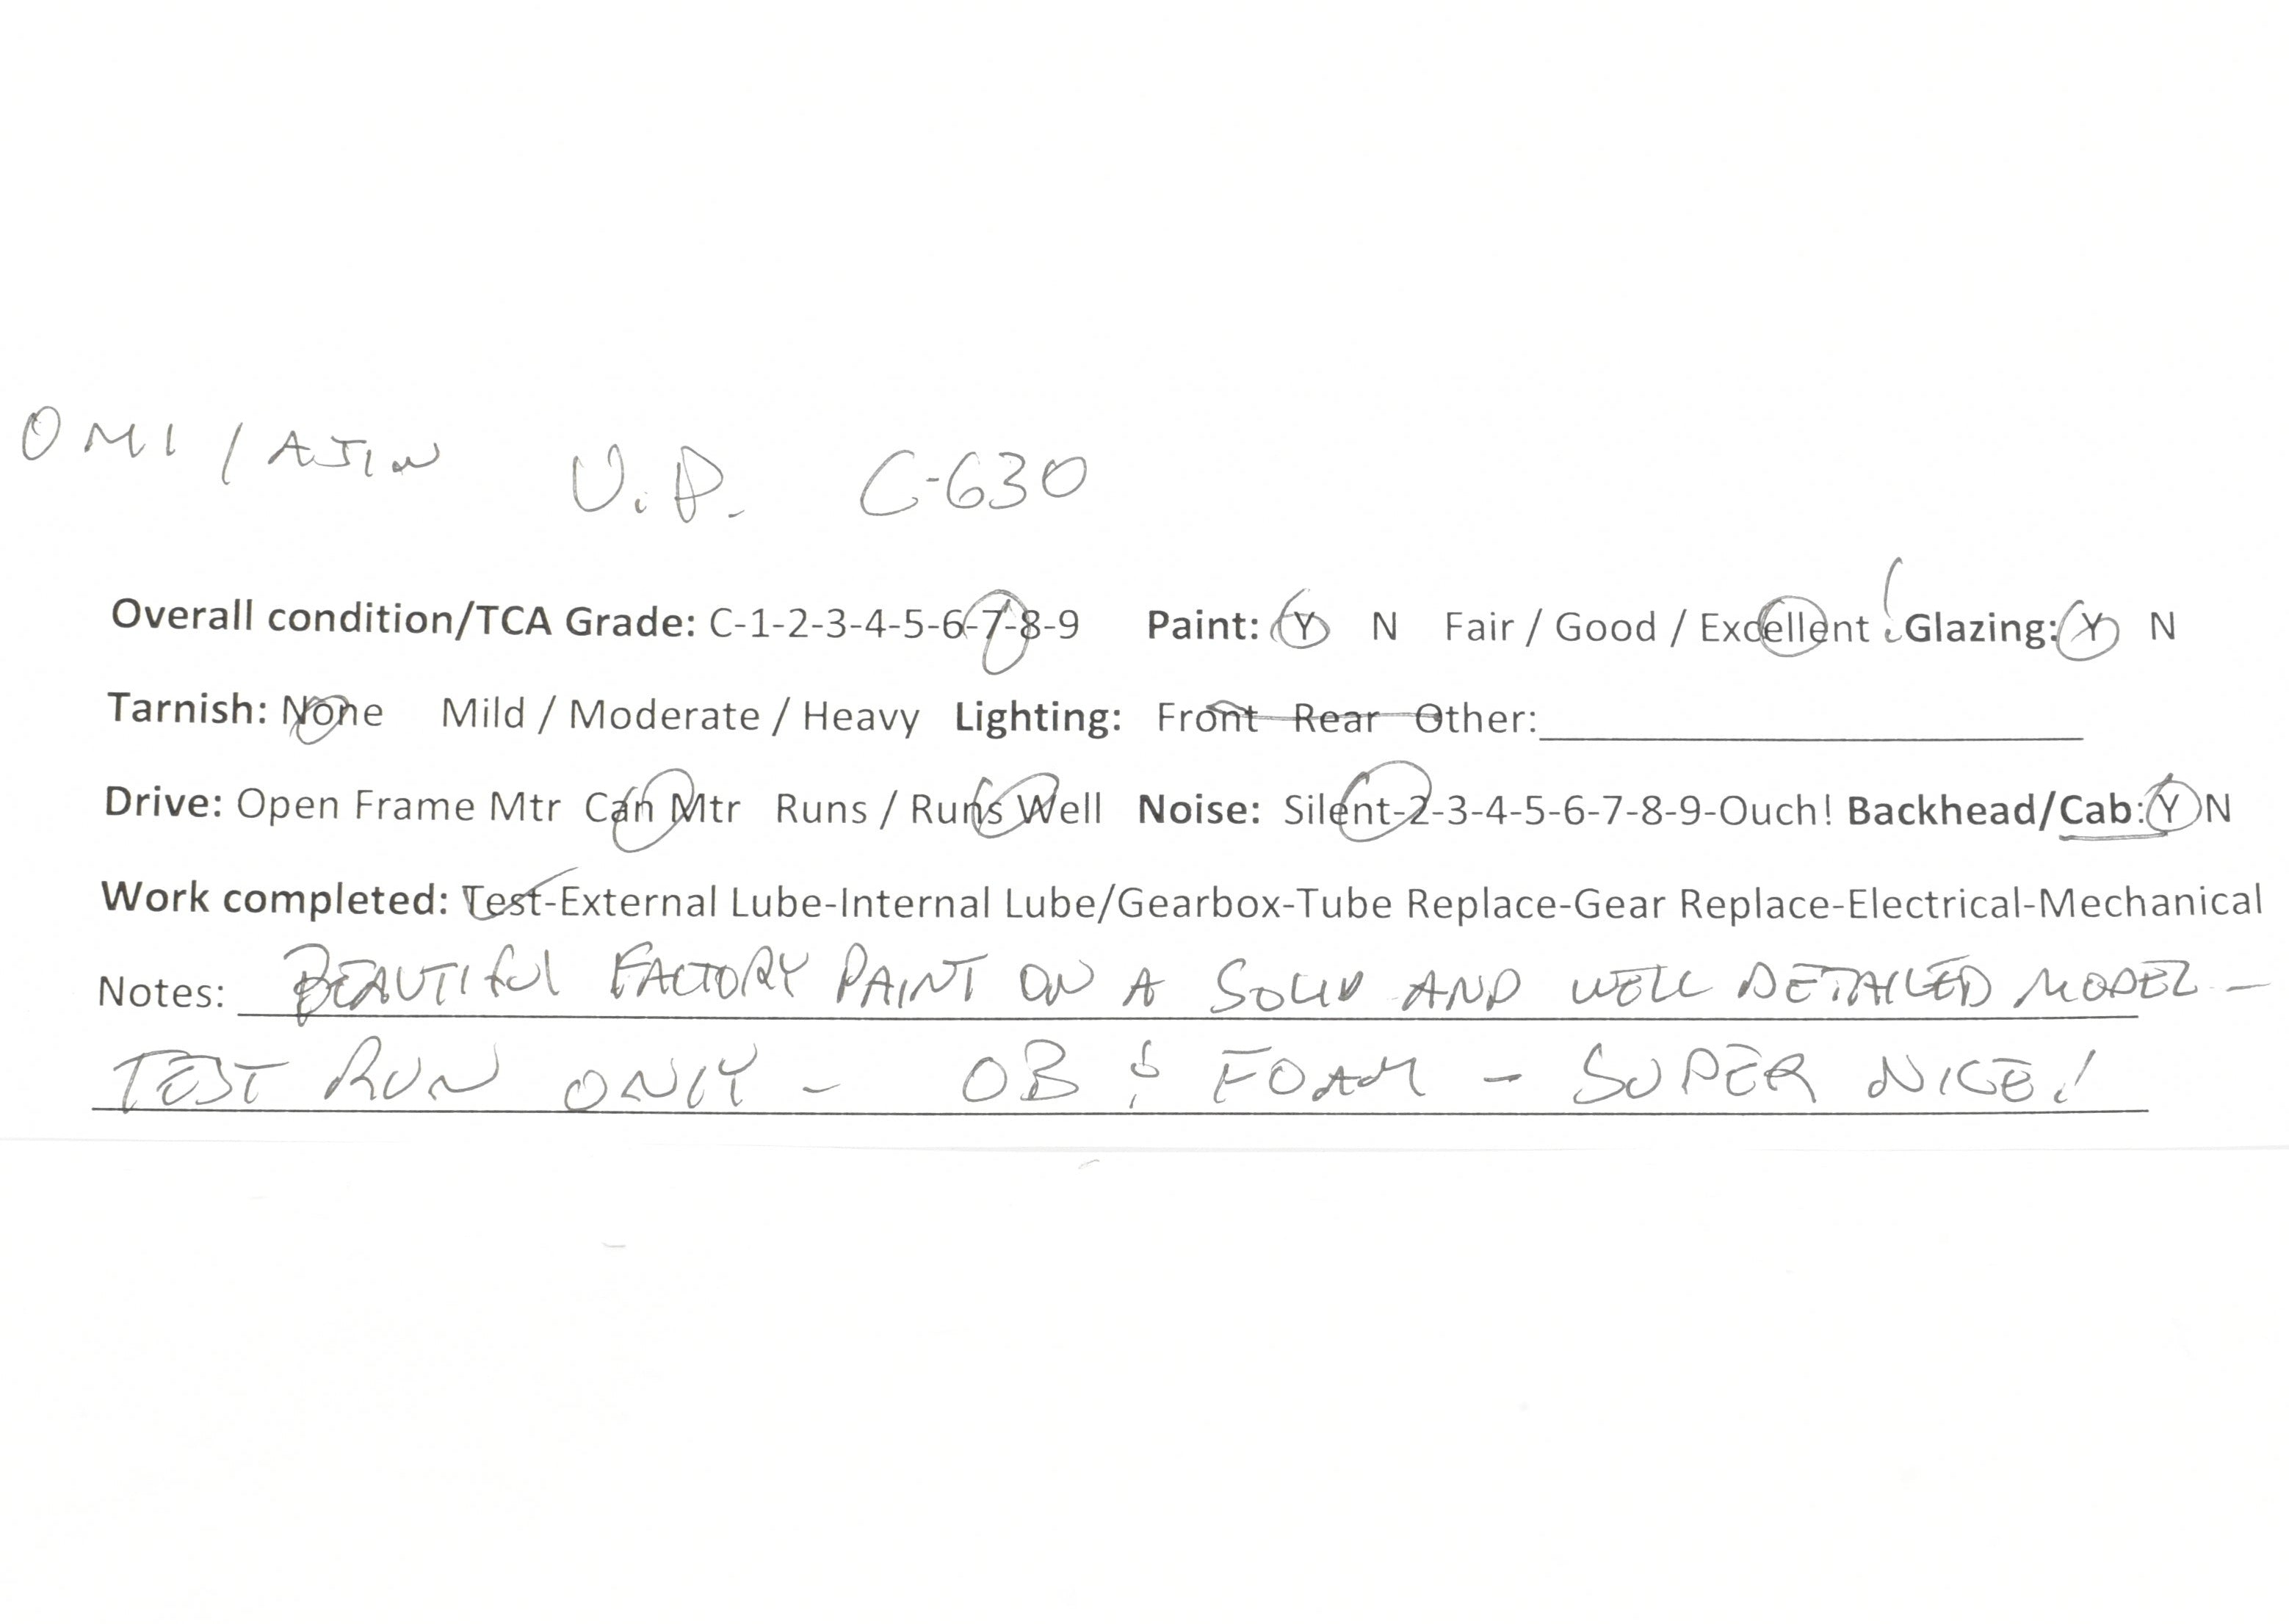 OMI / AJIN U.P. C-630
Overall condition/TCA Grade: C-1-2-3-4-5-6-7-8-9 Paint: Y N Fair / Good / Excellent ! Glazing: Y N
Tarnish: None Mild / Moderate / Heavy Lighting: Front Rear Other:
Drive: Open Frame Mtr Can Mtr Runs / Runs Well Noise: Silent-2-3-4-5-6-7-8-9-Ouch! Backhead/Cab: Y N
Work completed: Test-External Lube-Internal Lube/Gearbox-Tube Replace-Gear Replace-Electrical-Mechanical
Notes: BEAUTIFUL FACTORY PAINT ON A SOLID AND WELL DETAILED MODEL -
TEST RUN ONLY - OB & FOAM - SUPER NICE!